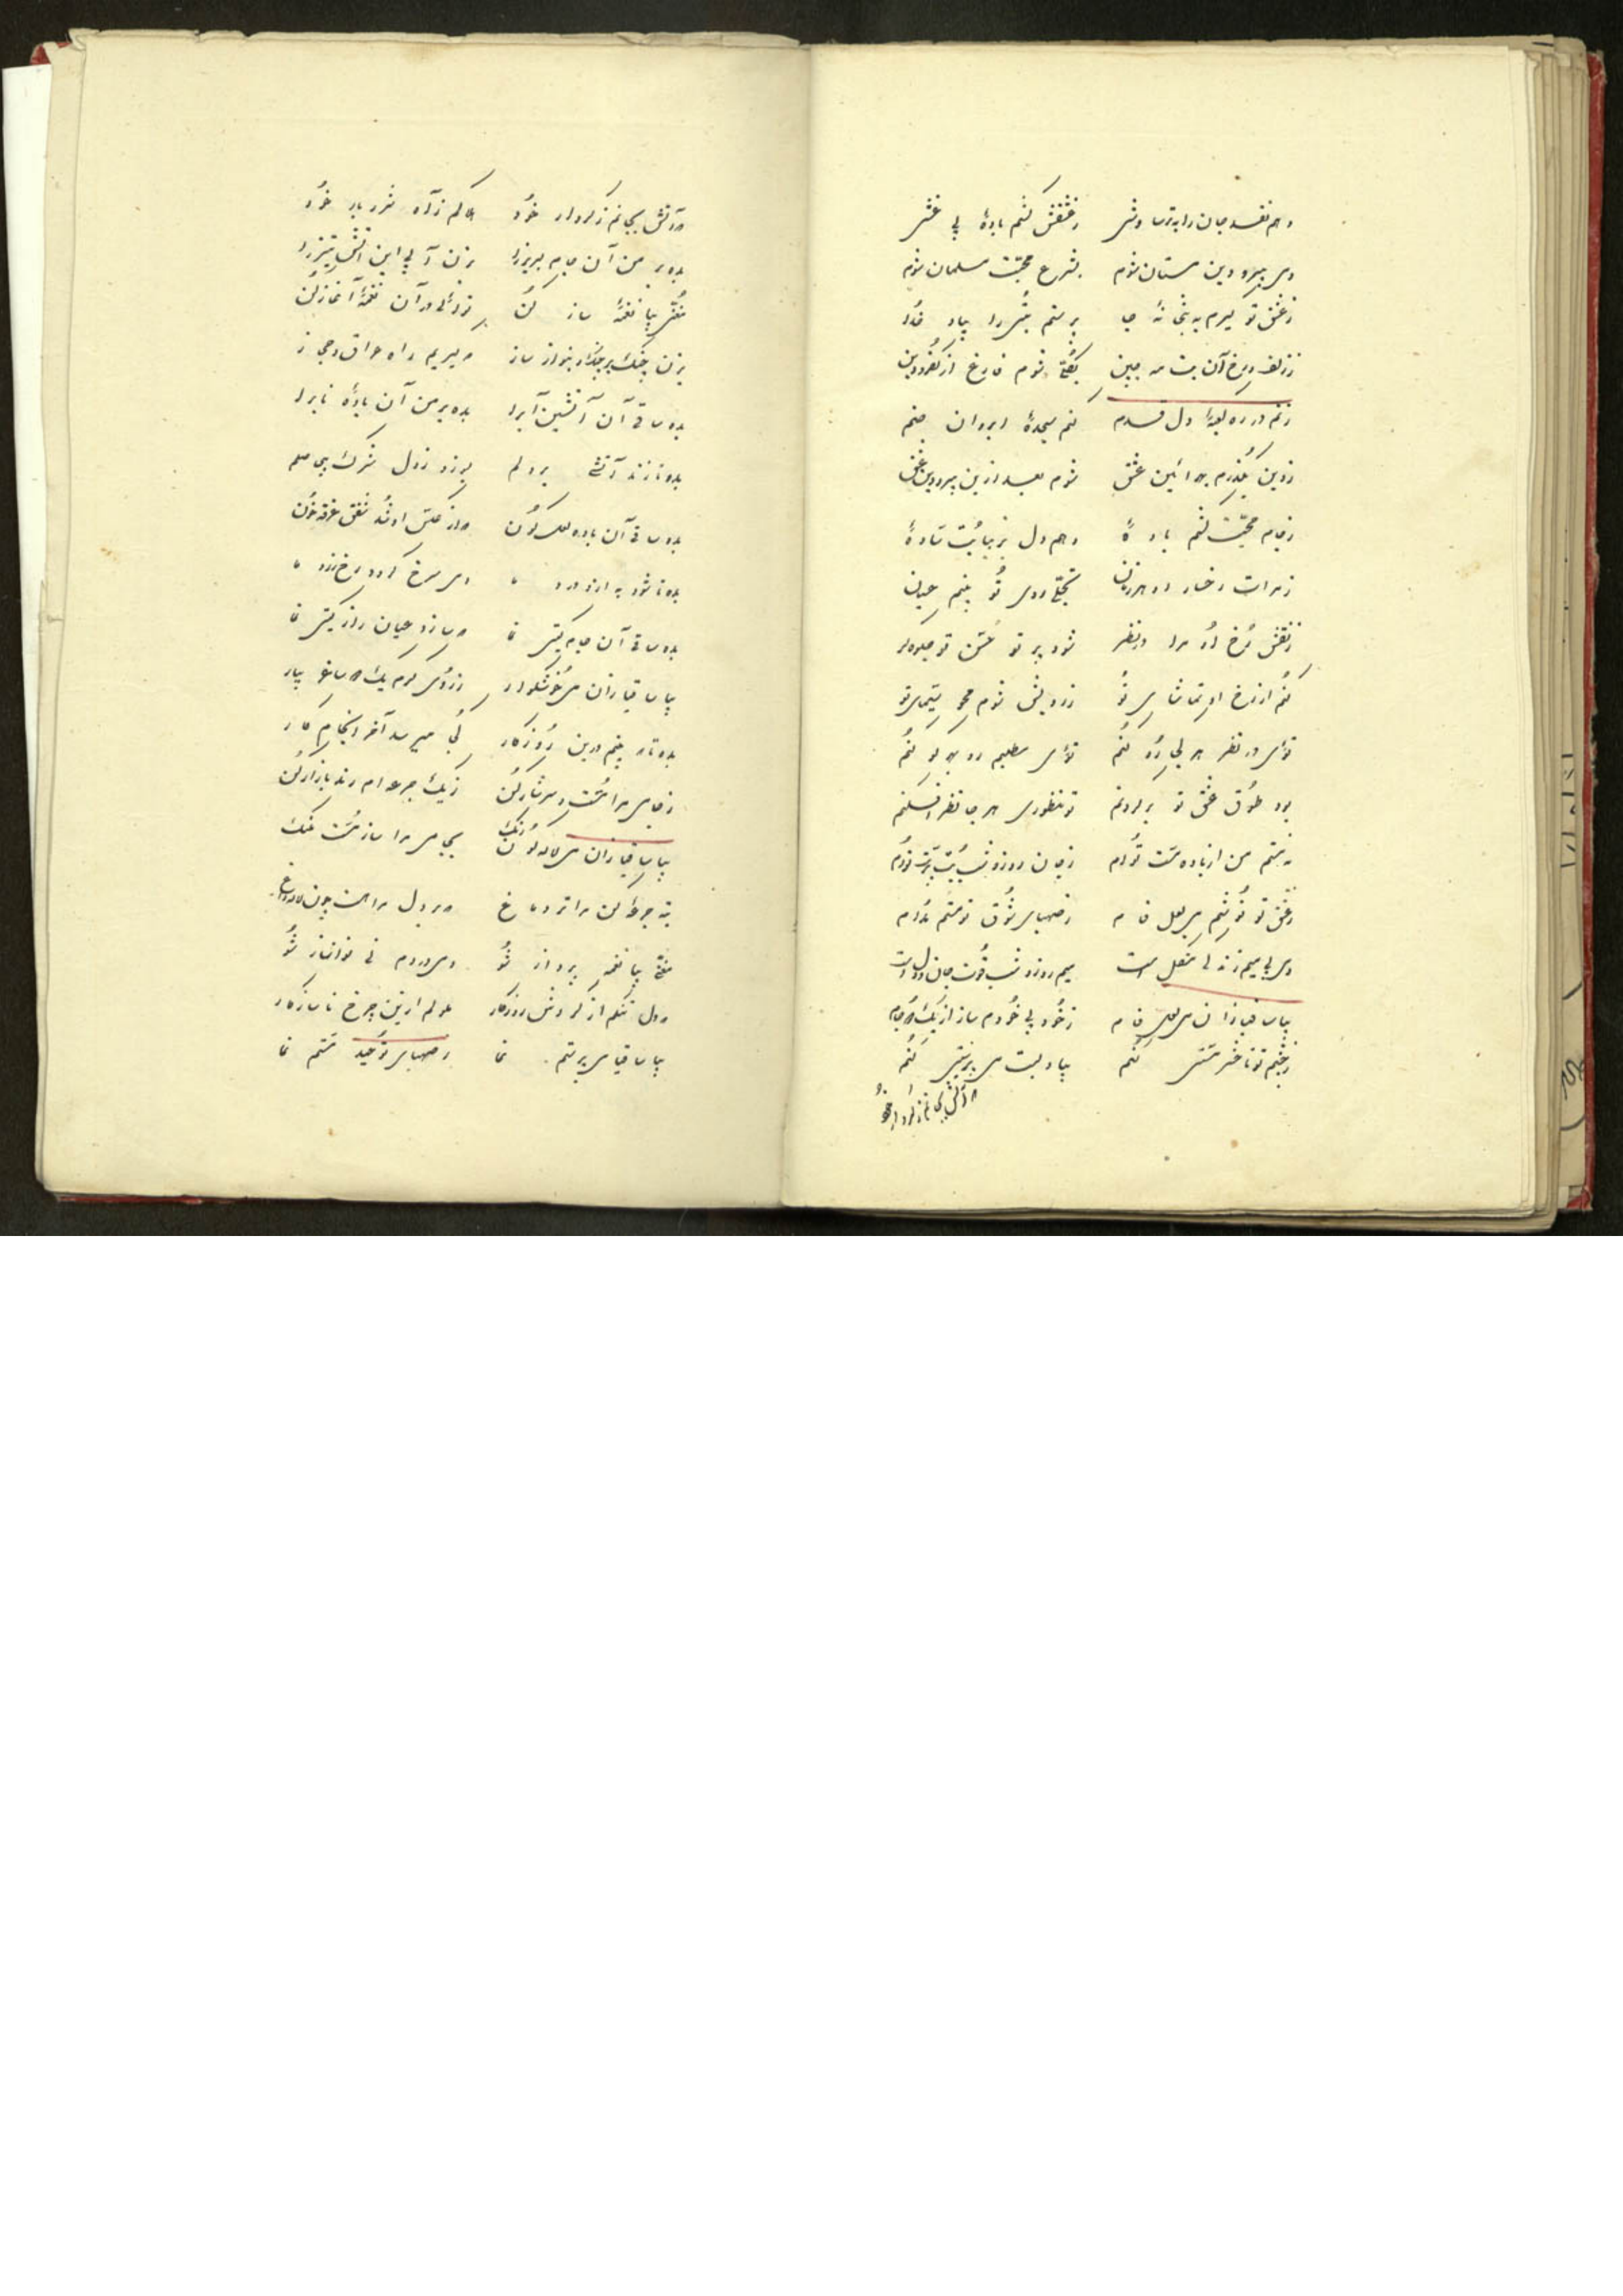 دهم نقد جان را به ترسا وشی ز عشقش کشم بادهٔ بی غشی
دمی پیرو دین مستان شوم بشرع محبت مسلمان شوم
ز عشق تو گیرم به بتخانه جا پرستم بتی را بیاد خدا
ز زلف و رخ آن بت مه جبین بکلی شوم فارغ از کفر و دین
زنم در ره کعبهٔ دل قدم کنم سجدهٔ ابروان صنم
ز دین بگذرم به آئین عشق شوم بعد ازین پیرو دین عشق
ز جام محبت کشم بادهٔ دهم دل بزیبا بت سادهٔ
ز مرات رخسار او هر زمان تجلی روی تو بینم عیان
ز نقش رخ او مرا در نظر شود پرتو حسن تو جلوه‌گر
کنم از رخ او تماشای تو ز رویش شوم محو سیمای تو
توئی در نظر هر کجا رو کنم توئی مطلبم رو به هر سو کنم
بود طوق عشق تو بر گردنم تو منظوری هر جا نظر افکنم
نه مستم من از باده مست توام ز جان روز و شب بت پرست توام
ز عشق تو نوشم می لعل فام ز صهبای شوق تو مستم مدام
دمی بی میم زندگی مشکل است میم روز و شب قوت جان و دل است
بیا ساقیا زان می لعل فام ز خود بیخودم ساز از یک دو جام
ز چشم تو تا خشر مستی کنم بیاد لبت می پرستی کنم
در آتش بجانم ز کردار خود
در آتش بجانم ز کردار خود هلاکم ز آه شرربار خود
بده بر من آن جام لبریز را بزن آبی این آتش تیز را
مغنی بیا نغمهٔ ساز کن نوائی در آن نغمهٔ آغاز کن
بزن چنگ بر چنگ و بنواز ساز سراییم راه عراق و حجاز
بده ساقی آن آتشین آب را بده بر من آن بادهٔ ناب را
بده تا زند آتشی بر دلم بسوزد ز دل شرک بی حاصلم
بده ساقی آن باده لعل گون که از عکس او شد شفق غرقه خون
بده تا شود به ازو درد ما دمی سرخ گردد رخ زرد ما
بده ساقی آن جام گیتی نما که سازد عیان راز گیتی نما
بیا ساقیا زان می خوشگوار ز روی کرم یک دو ساغر بیار
بده تا به بینم درین روزگار کجا میرسد آخر انجام کار
ز جامی مرا مست و سرشار کن ز یک جرعه‌ام رند بازار کن
بیا ساقیا زان می لاله گون رنگ بجامی مرا ساز مست ملنگ
به ته جرعهٔ کن مرا تر دماغ که بر دل مراست چون لاله داغ
مغنی بیا نغمه پرداز شو دمی در دم نی نواساز شو
که دل تنگم از گردش روزگار ملولم ازین چرخ ناسازگار
بیا ساقیا می پرستم نما ز صهبای توحید مستم نما